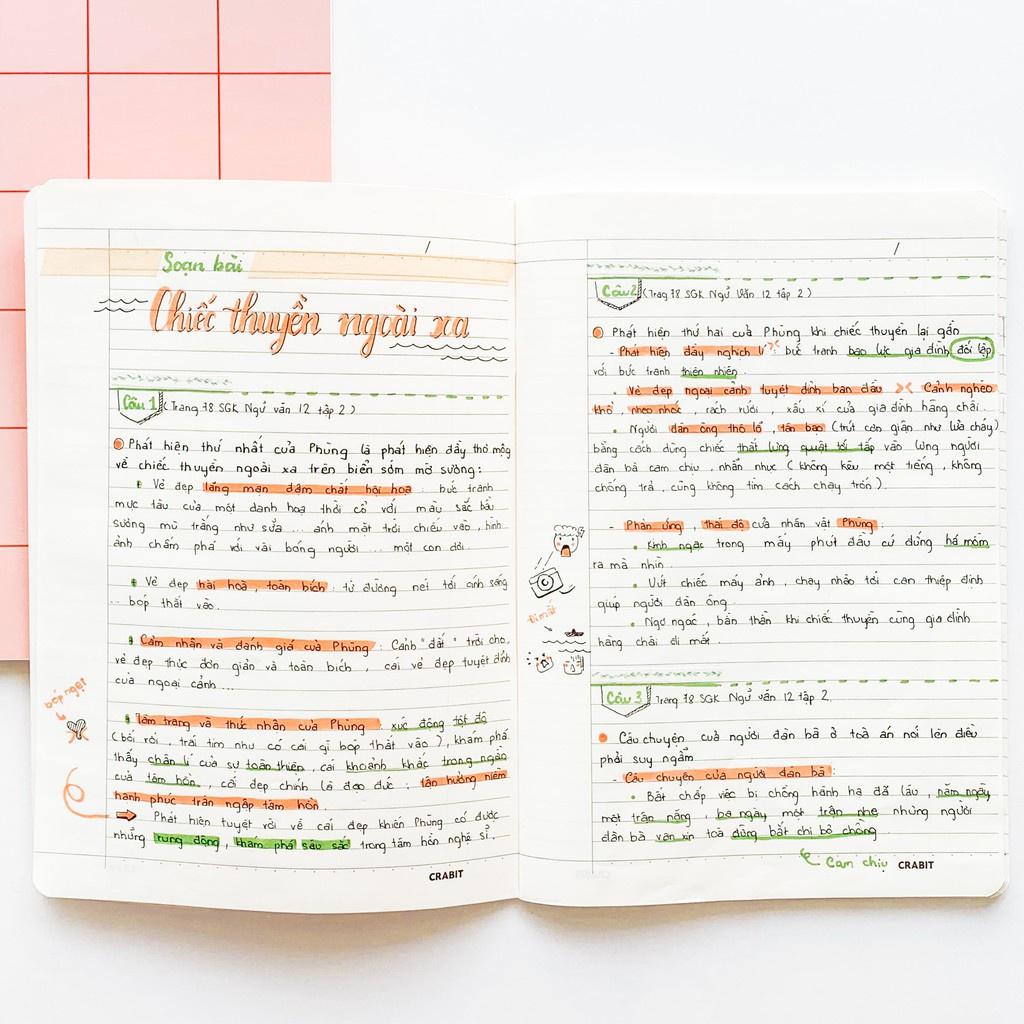 Soạn bài
Chiếc thuyền ngoài xa
Câu 1 (Trang 78 SGK Ngữ văn 12 tập 2)
Phát hiện thứ nhất của Phùng là phát hiện đầy thơ mộng
về chiếc thuyền ngoài xa trên biển sớm mờ sương:
Vẻ đẹp lãng mạn đậm chất hội hoạ: bức tranh
mực tàu của một danh hoạ thời cổ với màu sắc bầu
sương mù trắng như sữa ... ánh mặt trời chiếu vào, hình
ảnh chấm phá với vài bóng người ... một con dơi
Vẻ đẹp hài hoà, toàn bích: từ đường nét tới ánh sáng
... bóp thắt vào.
Cảm nhận và đánh giá của Phùng: Cảnh "đắt" trời cho,
vẻ đẹp thực đơn giản và toàn bích, cái vẻ đẹp tuyệt đỉnh
của ngoại cảnh...
bóp nghẹt
Tâm trạng và thức nhận của Phùng, xúc động tột độ
(bối rối, trái tim như có cái gì bóp thắt vào), khám phá
thấy chân lí của sự toàn thiện, cái khoảnh khắc trong ngần
của tâm hồn, cái đẹp chính là đạo đức; tận hưởng niềm
hạnh phúc tràn ngập tâm hồn.
Phát hiện tuyệt vời về cái đẹp khiến Phùng có được
những rung động, khám phá sâu sắc trong tâm hồn nghệ sĩ.
CRABIT
Câu 2 (Trag 78 SGK Ngữ Văn 12 tập 2)
Phát hiện thứ hai của Phùng khi chiếc thuyền lại gần
- Phát hiện đầy nghịch lí: bức tranh bạo lực gia đình đối lập
với bức tranh thiên nhiên.
Vẻ đẹp ngoại cảnh tuyệt đỉnh ban đầu >< Cảnh nghèo
khổ, nheo nhóc, rách rưới, xấu xí của gia đình hàng chài.
Người đàn ông thô lỗ, tàn bạo (trút cơn giận như lửa cháy)
bằng cách dùng chiếc thắt lưng quật tới tấp vào lưng người
đàn bà cam chịu, nhẫn nhục (không kêu một tiếng, không
chống trả, cũng không tìm cách chạy trốn).
- Phản ứng, thái độ của nhân vật Phùng:
Kinh ngạc trong mấy phút đầu cứ đứng há mồm
ra mà nhìn.
Vứt chiếc máy ảnh, chạy nhào tới can thiệp định
giúp người đàn ông.
Ngơ ngác, bần thần khi chiếc thuyền cùng gia đình
hàng chài đi mất.
Đi mất
Câu 3 Trang 78 SGK Ngữ văn 12 tập 2.
Câu chuyện của người đàn bà ở toà án nói lên điều
phải suy ngẫm
- Câu chuyện của người đàn bà:
Bất chấp việc bị chồng hành hạ đã lâu, năm ngày
một trận nặng, ba ngày một trận nhẹ nhưng người
đàn bà van xin toà đừng bắt chị bỏ chồng.
Cam chịu
CRABIT